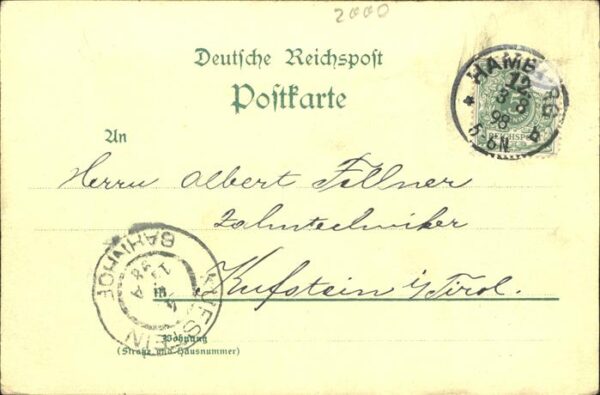 2000
Deutsche Reichspost
Postkarte
HAMBURG
12
3 8
98
5-6N
REICHSPOST
An
Herrn Albert Fellner
Zahntechniker
in Kufstein i/Tirol.
KUFSTEIN
BAHNHOF
98
Wohnung
(Straße und Hausnummer)